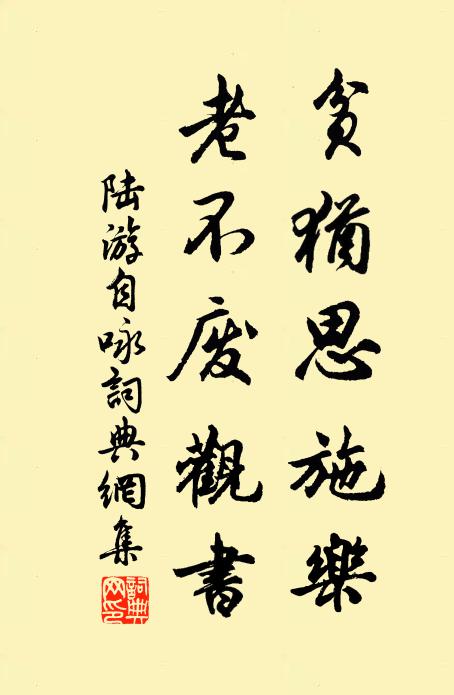 貧猶思施樂
老不废觀書
陆游自咏詞典網集
詞典
网印